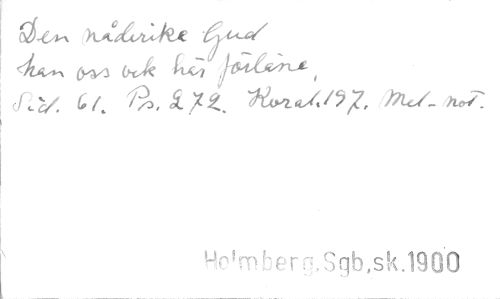 Den nåderika Gud
han oss ock här förläne,
Sid. 61. Ps. 272. Koral.197. Mel-not.
Holmberg,Sgb,sk.1900